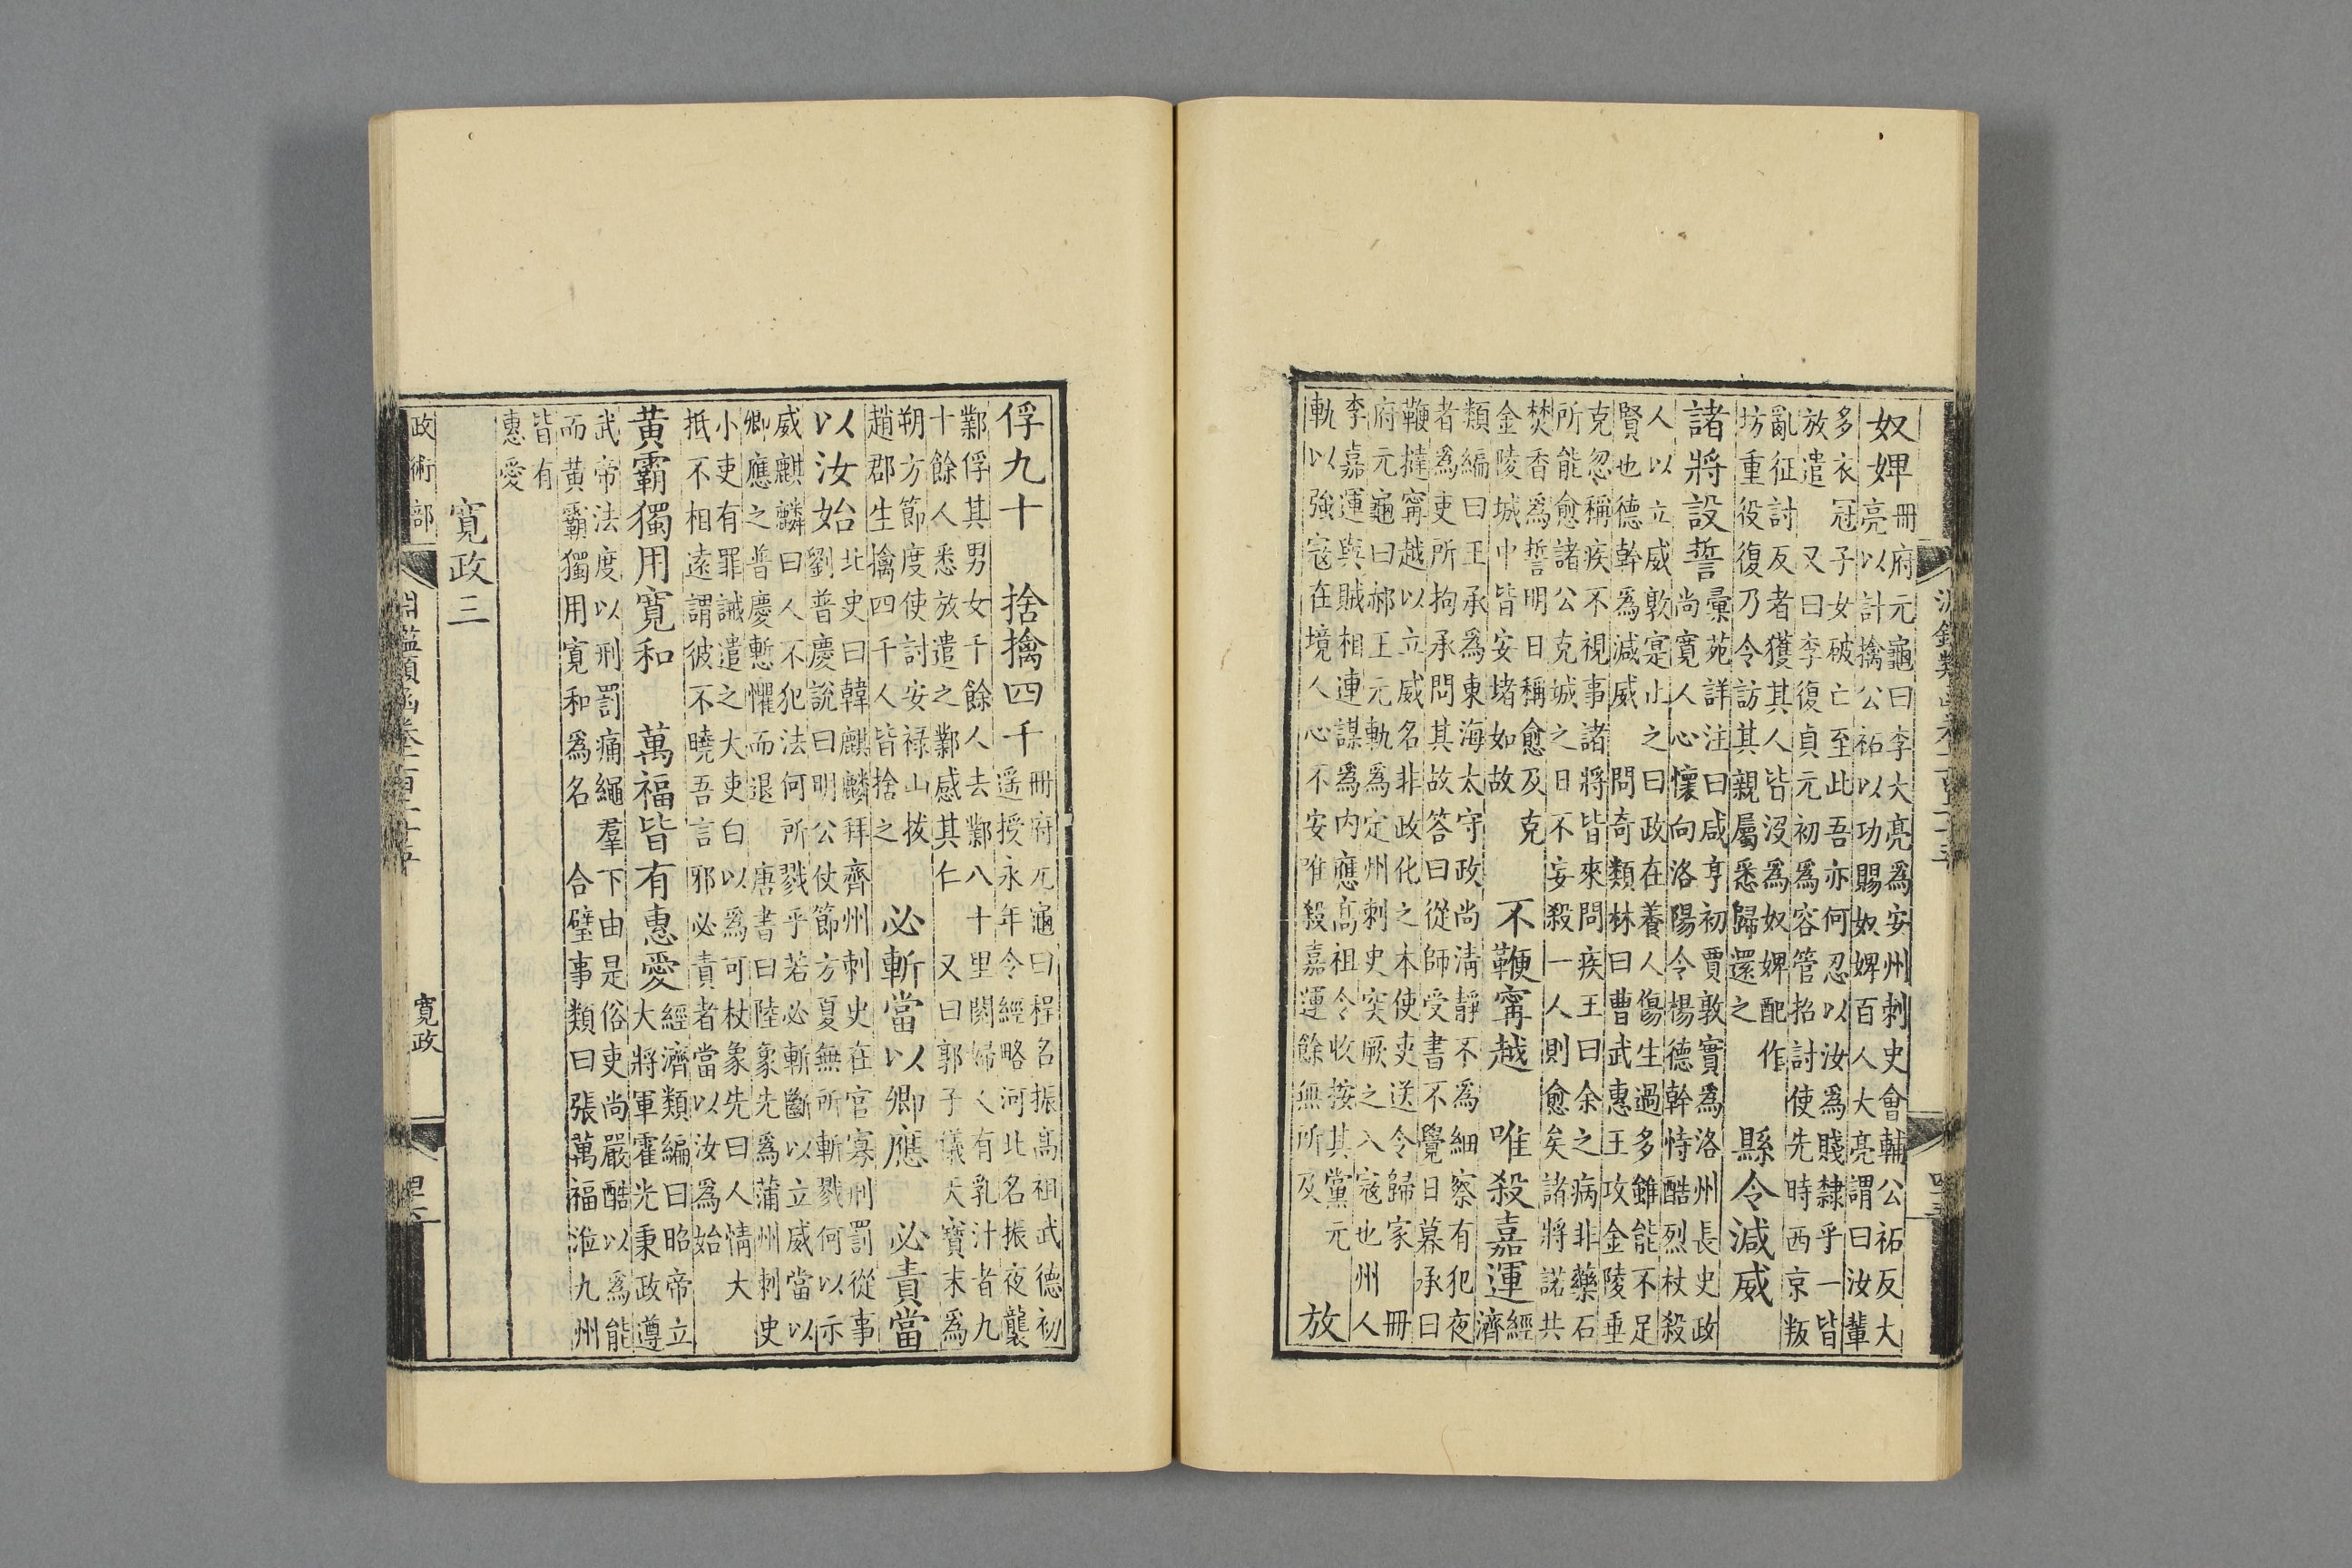 奴婢
冊府元龜曰李大亮為安州刺史會輔公祏反大
亮以計擒公祏以功賜奴婢百人大亮謂曰汝輩
多衣冠子女破亡至此吾亦何忍以汝為賤隸乎一皆
放遣　又曰李復貞元初為容管招討使先時西京叛
亂征討反者獲其人皆沒為奴婢配作
坊重役復乃令訪其親屬悉歸還之
縣令減威
諸將設誓
彙苑詳注曰咸亨初賈敦實為洛州長史政
尚寬人心懷向洛陽令楊德幹恃酷烈杖殺
人以立威敦寔止之曰政在養人傷生過多雖能不足
賢也德幹為減威　問奇類林曰曹武惠王攻金陵垂
克忽稱疾不視事諸將皆來問疾王曰余之病非藥石
所能愈諸公克城之日不妄殺一人則愈矣諸將諾共
焚香為誓明日稱愈及克
金陵城中皆安堵如故
不鞭寧越　唯殺嘉運
經
濟
類編曰王承為東海太守政尚清靜不為細察有犯夜
者為吏所拘承問其故答曰從師受書不覺日暮承曰
鞭撻寧越以立威名非政化之本使吏送令歸家　冊
府元龜曰郝王元軌為定州刺史突厥之入寇也州人
李嘉運與賊相連謀為內應高祖令收按其黨元
軌以強寇在境人心不安唯殺嘉運餘無所及
放
俘九十　捨擒四千
冊府元龜曰桯名振高祖武德初
遥授永年令經略河北名振夜襲
鄴俘其男女千餘人去鄴八十里閱婦人有乳汁者九
十餘人悉放遣之鄴感其仁　又曰郭子儀天寶末為
朔方節度使討安祿山拔
趙郡生擒四千人皆捨之
必斬當以卿應　必責當
以汝始
北史曰韓麒麟拜齊州刺史在官寡刑罰從事
劉普慶說曰明公仗節方夏無所斬戮何以示
威麒麟曰人不犯法何所戮乎若必斬斷以立威當以
卿應之普慶慙懼而退　唐書曰陸象先為蒲州刺史
小吏有罪誡遣之大吏白以為可杖象先曰人情大
抵不相遠謂彼不曉吾言邪必責者當以汝為始
黃霸獨用寬和　萬福皆有惠愛
經濟類編曰昭帝立
大將軍霍光秉政遵
武帝法度以刑罰痛繩羣下由是俗吏尚嚴酷以為能
而黃霸獨用寬和為名　合璧事類曰張萬福涖九州
皆有
惠愛
寬政三
政術部
寬政